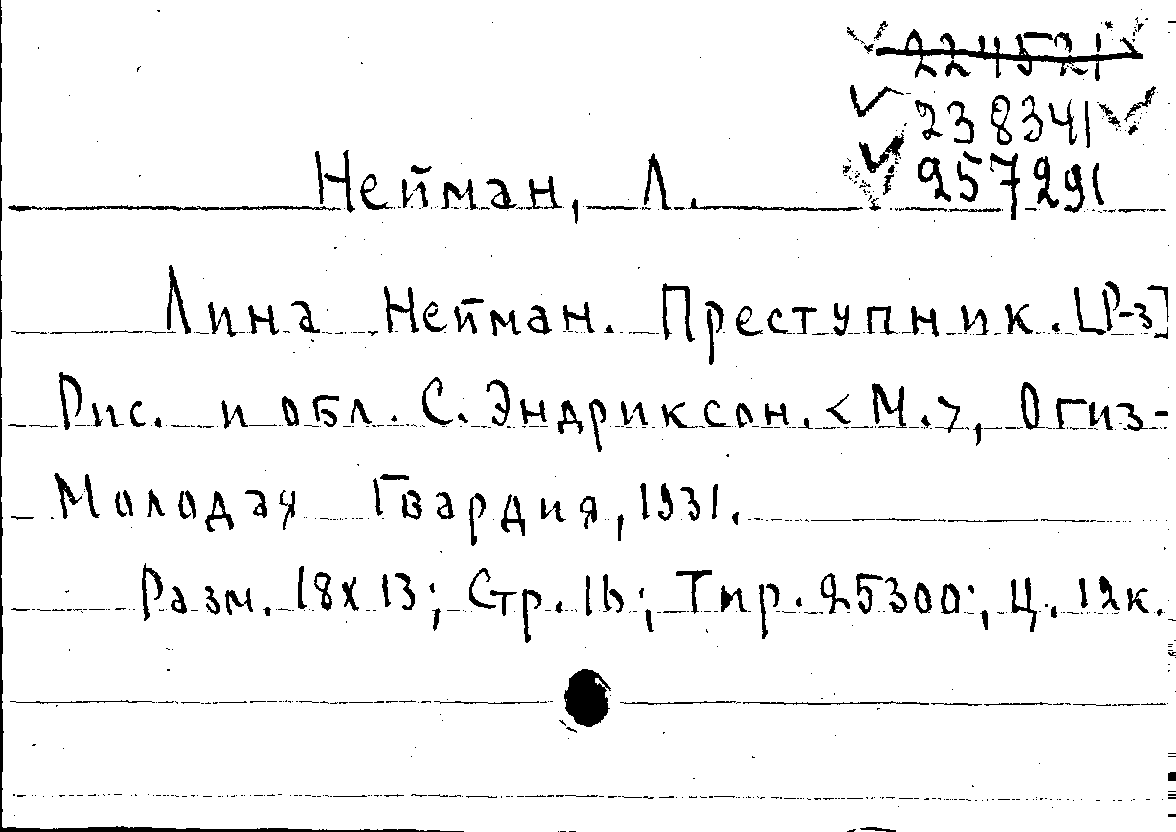 224521
238341
257291
Нейман, Л.
Лина Нейман. Преступник. [Р-з]
Рис. и обл. С. Эндриксон. <М.>, Огиз-
Молодая Гвардия, 1931.
Разм. 18х13; Стр. 16; Тир. 25300; Ц. 12к.